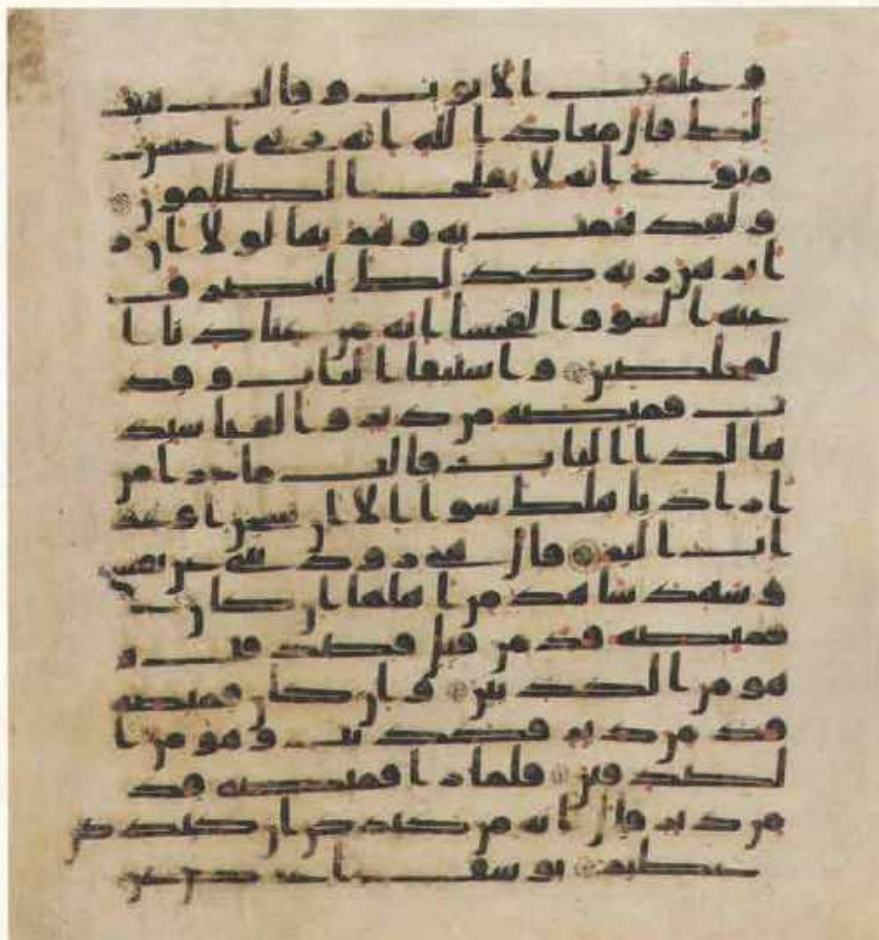 و غلقت الابوب وقالت هيت
لك قال معاذ الله انه ربي احسن
مثوي انه لا يفلح الظلمون
ولقد همت به وهم بها لولا ان ر
ا برهن ربه كذلك لنصرف
عنه السو والفحشا انه من عبادنا ا
لمخلصين واستبقا الباب وقد
ت قميصه من دبر والفيا سيد
ها لدا الباب قالت ما جزا من
اراد باهلك سوا الا ان يسجن او عذ
اب اليم قال هي رودتني عن نفسي
وشهد شاهد من اهلها ان كان
قميصه قد من قبل فصدقت و
هو من الكذبين وان كان قميصه
قد من دبر فكذبت وهو من ا
لصدقين فلما را قميصه قد
من دبر قال انه من كيدكن ان كيدكن
عظيم يوسف اعرض عن